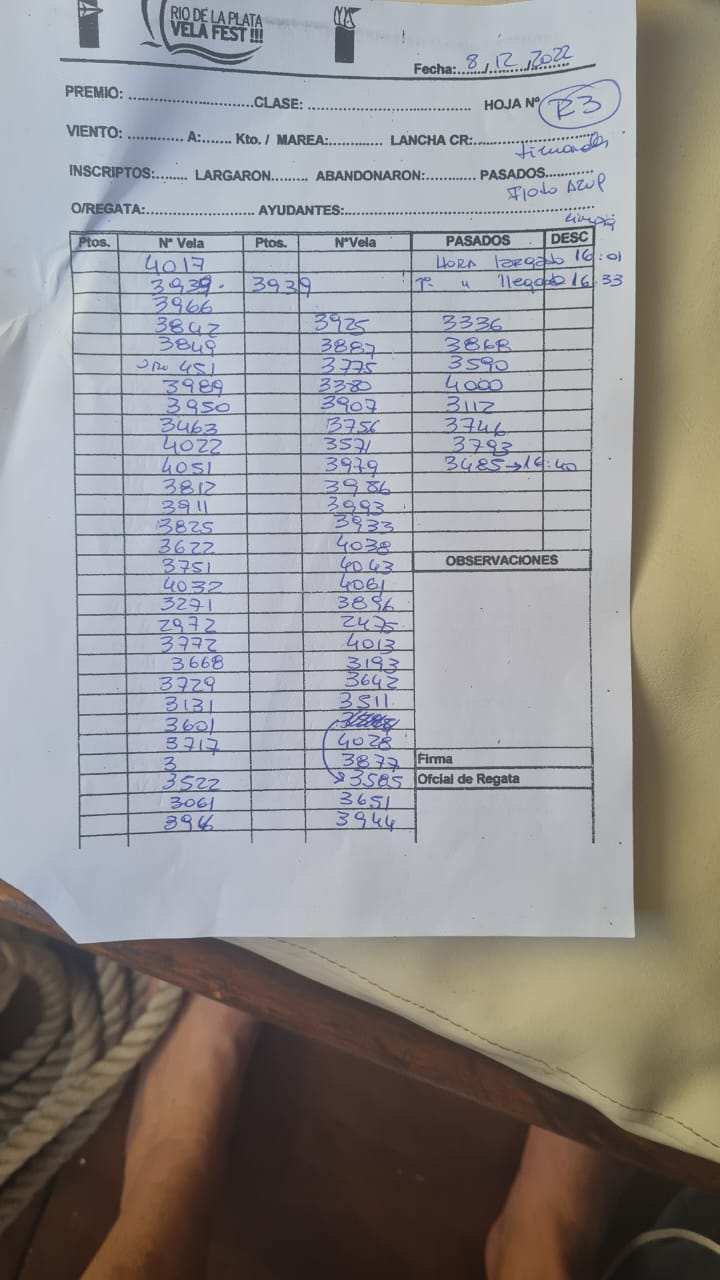 RIO DE LA PLATA
VELA FEST !!!
Fecha: 8/12/2022
PREMIO: CLASE: HOJA Nº R3
VIENTO: A: Kto. / MAREA: LANCHA CR:
INSCRIPTOS: LARGARON ABANDONARON: PASADOS
O/REGATA: AYUDANTES:
Ptos. N° Vela Ptos. N°Vela PASADOS DESC
4017 HORA largado 16:01
3939. 3939 1º " llegado 16:33
3966
3842 3925 3336
3849 3887 3868
451 3775 3590
3989 3380 4000
3950 3907 3112
3463 3756 3746
4022 3571 3793
4051 3979 3485→16:40
3812 3986
3911 3993
3825 3933
3622 4038
3751 4043 OBSERVACIONES
4032 4061
3271 3896
2972 2475
3772 4013
3668 3193
3729 3642
3131 3511
3601
3717 4028
3 3877 Firma
3522 3585 Ofcial de Regata
3061 3651
3944